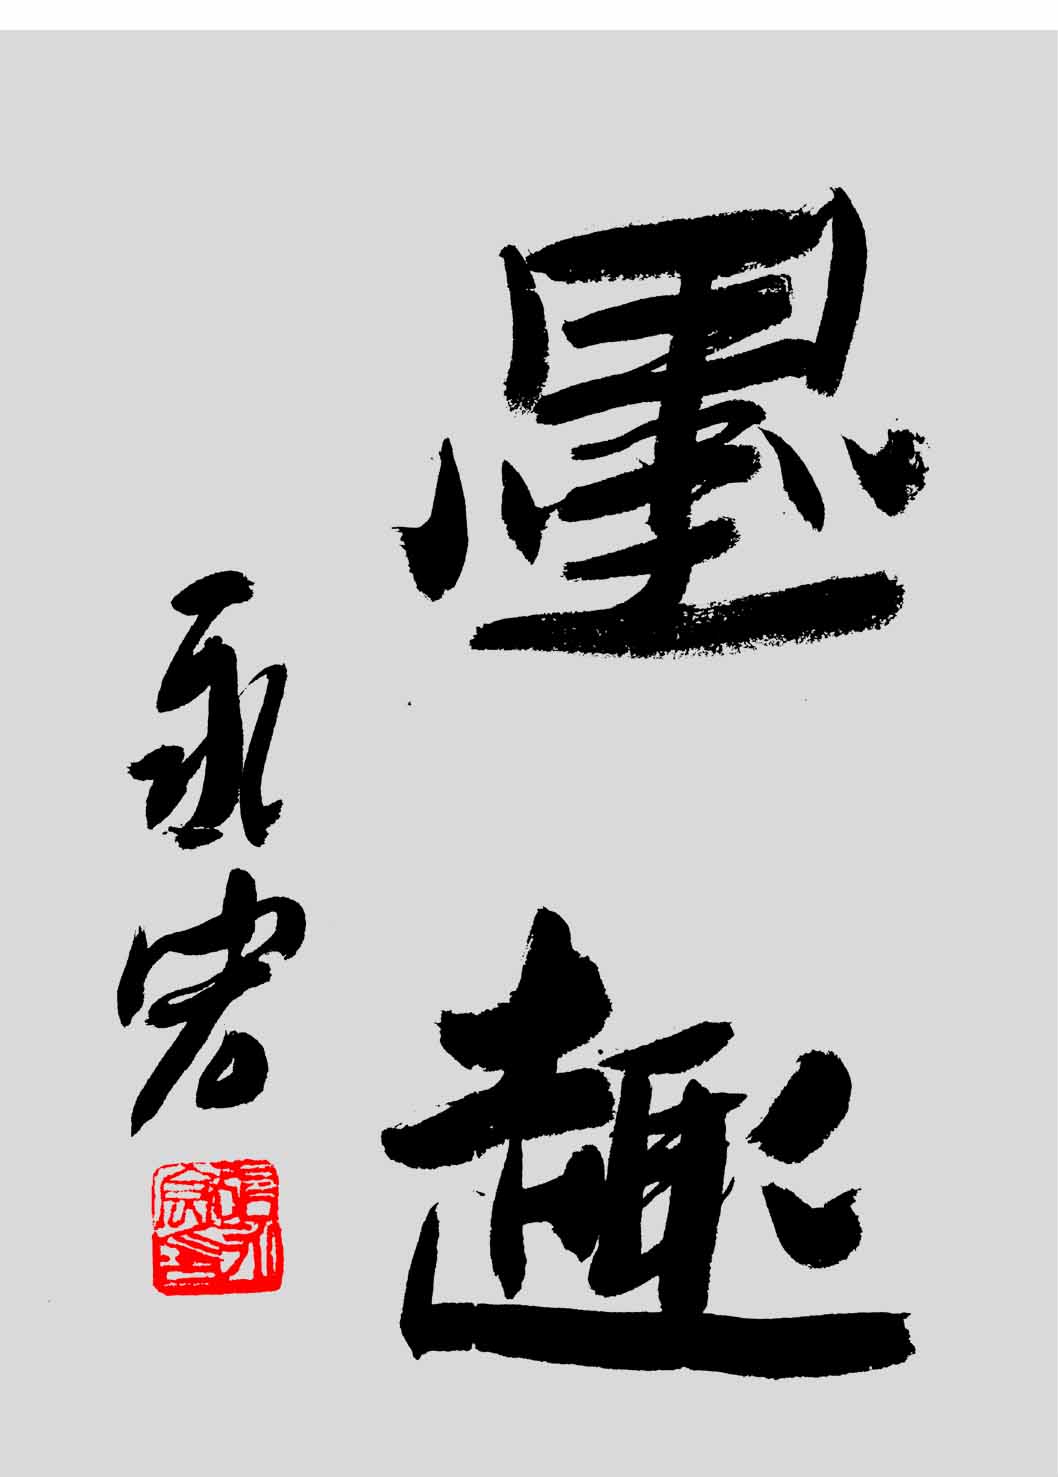 墨趣
永宏